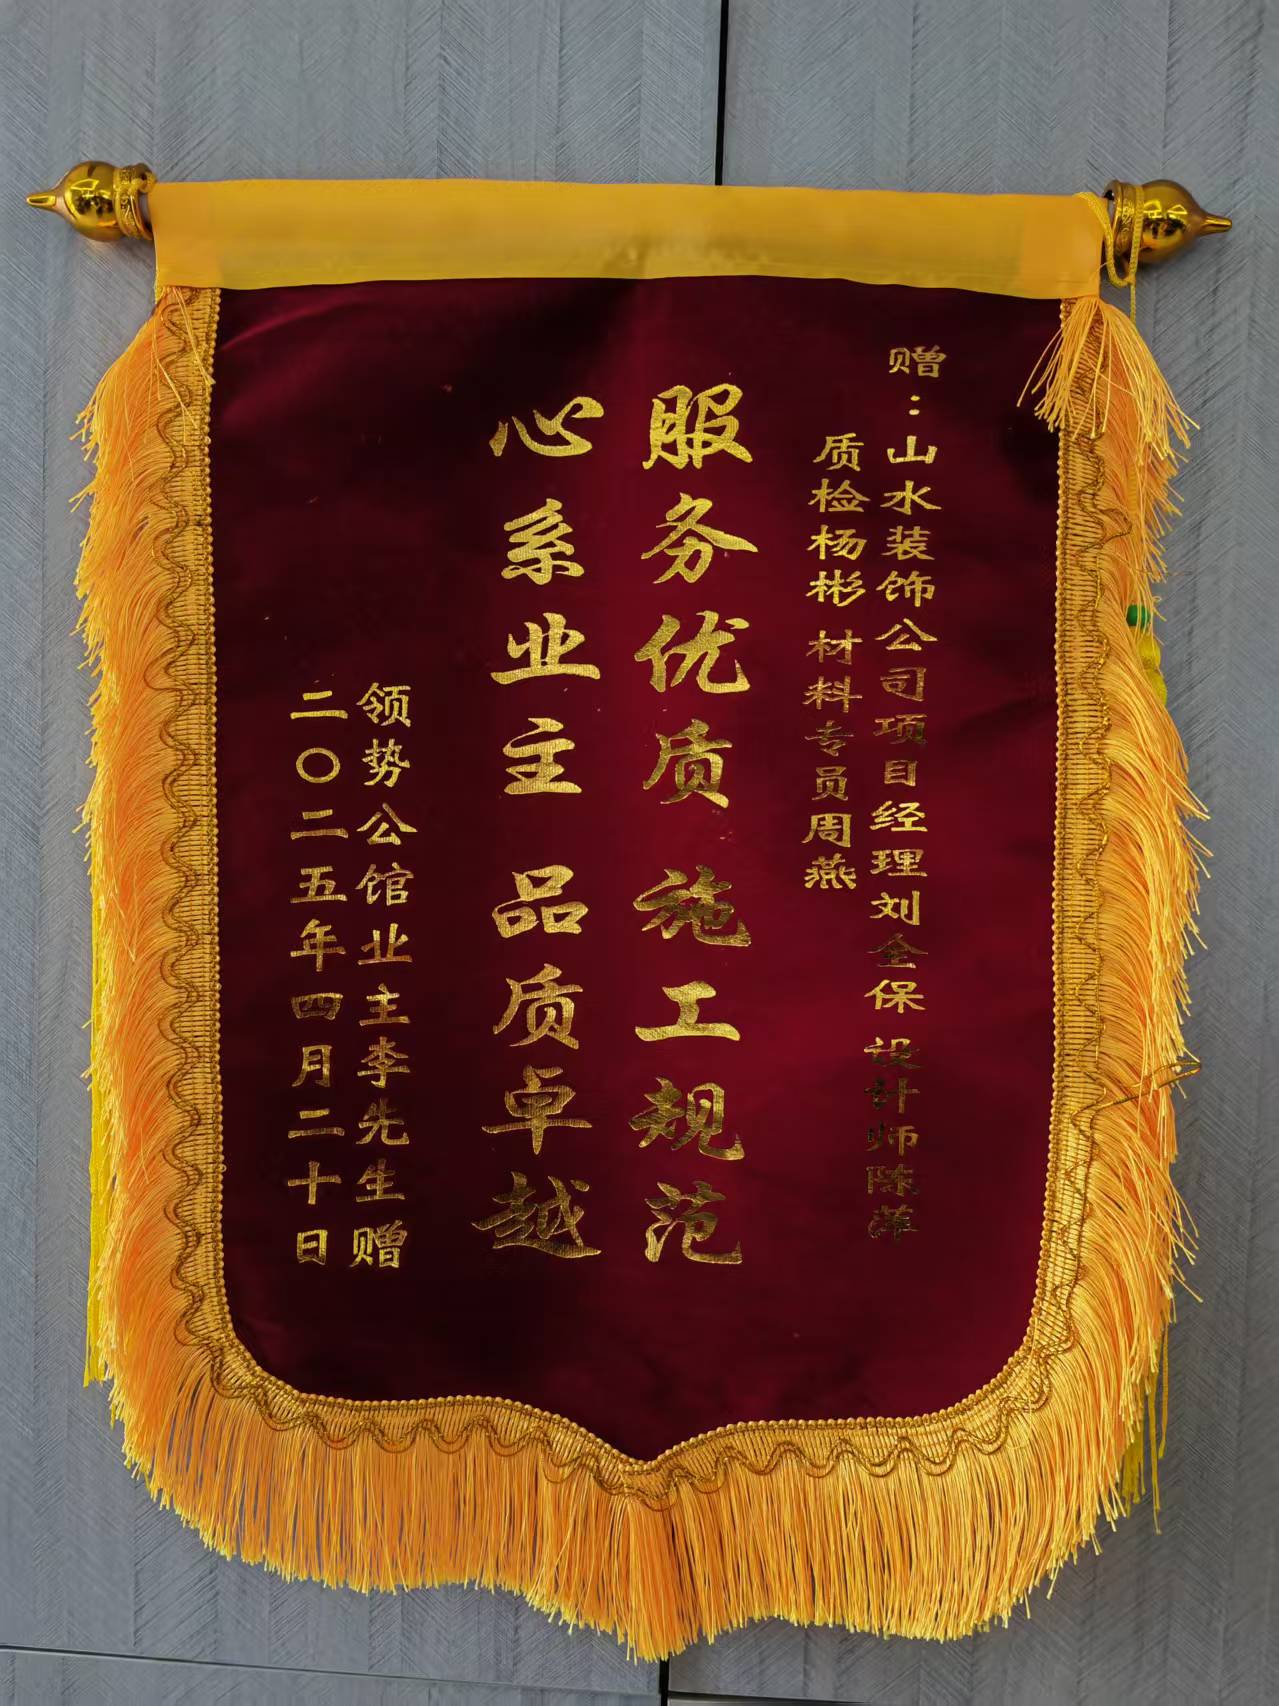 赠：山水装饰公司项目经理刘全保 设计师陈萍
质检杨彬 材料专员周燕
服务优质 施工规范
心系业主 品质卓越
领势公馆业主李先生赠
二〇二五年四月二十日